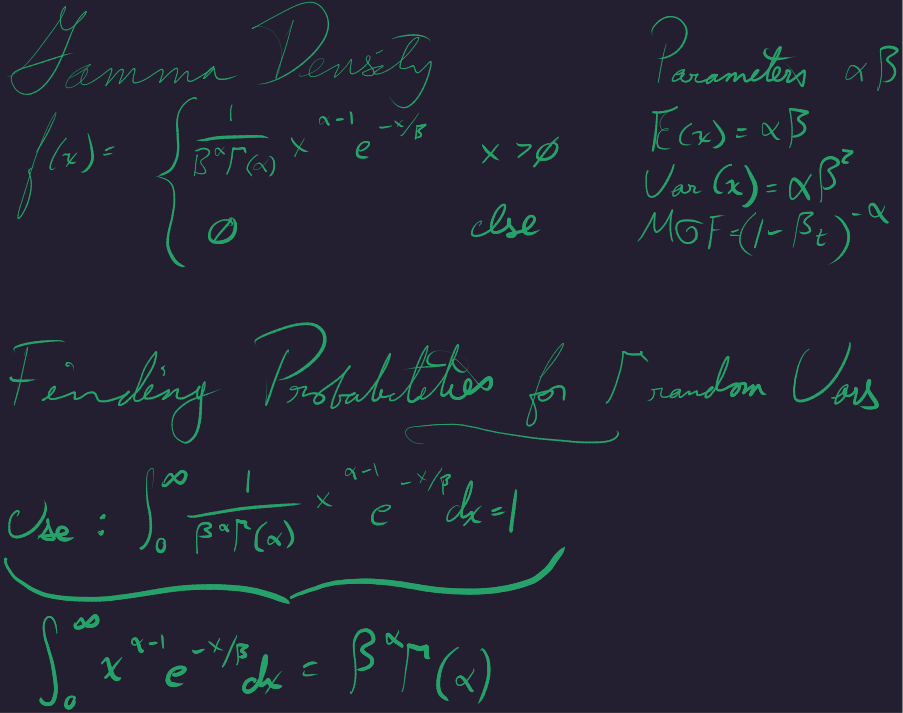 Gamma Density
f(x) = { 1/(β^α Γ(α)) x^(α-1) e^(-x/β) x > 0
0 else
Parameters α β
E(x) = αβ
Var(x) = αβ²
MGF = (1 - βt)^(-α)
Finding Probabilities for Γ random Vars
Use : ∫₀^∞ 1/(β^α Γ(α)) x^(α-1) e^(-x/β) dx = 1
∫₀^∞ x^(α-1) e^(-x/β) dx = β^α Γ(α)